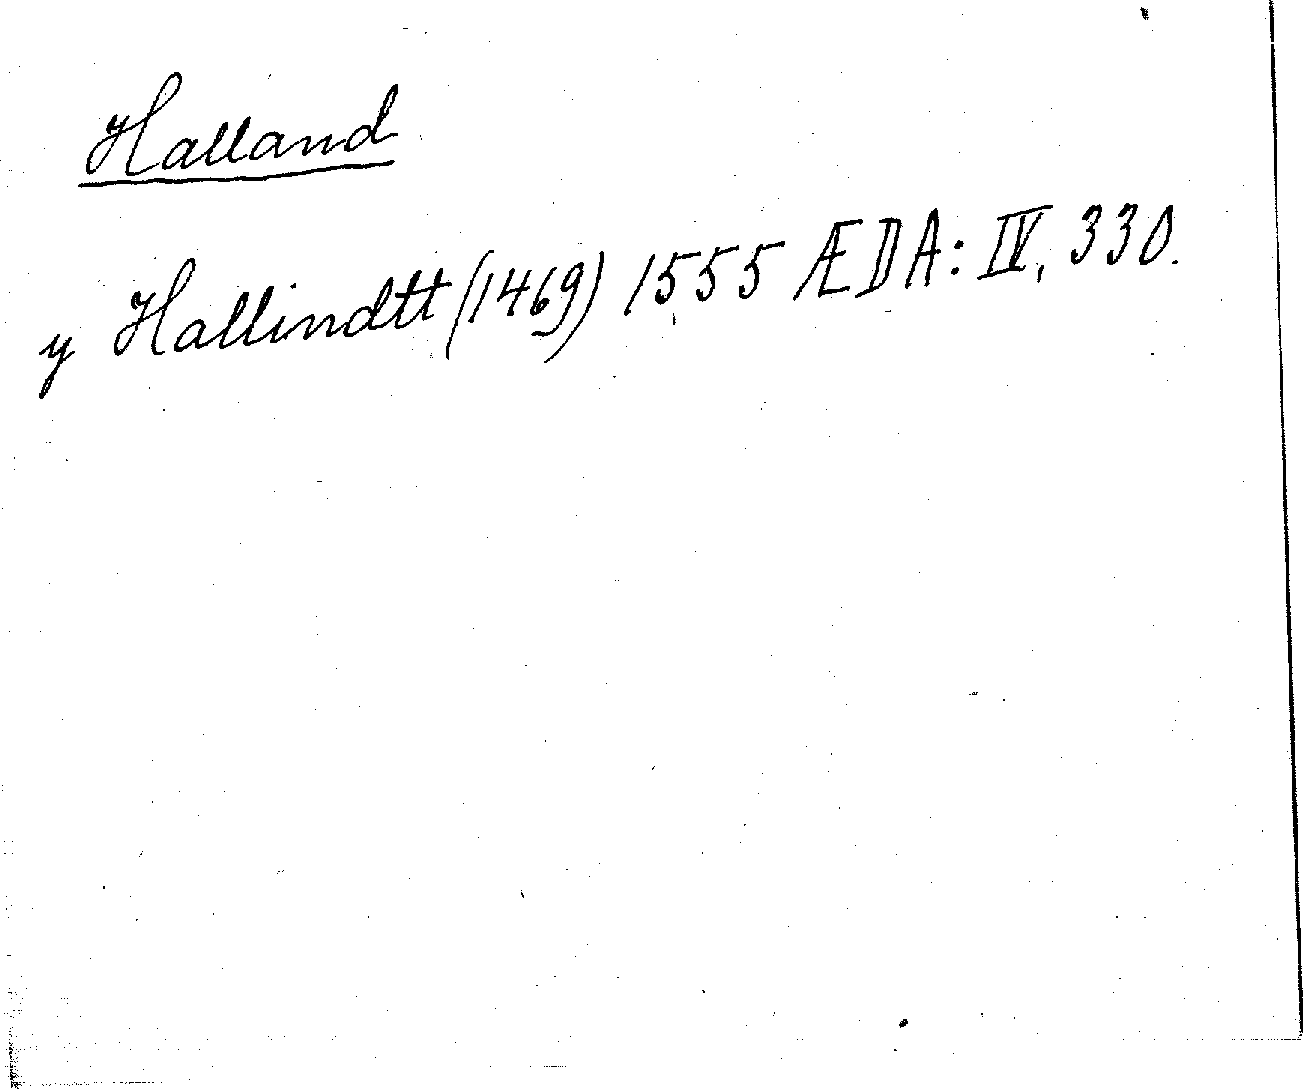 Halland
y Hallindtt (1469) 1555 ÆDA: IV, 330.